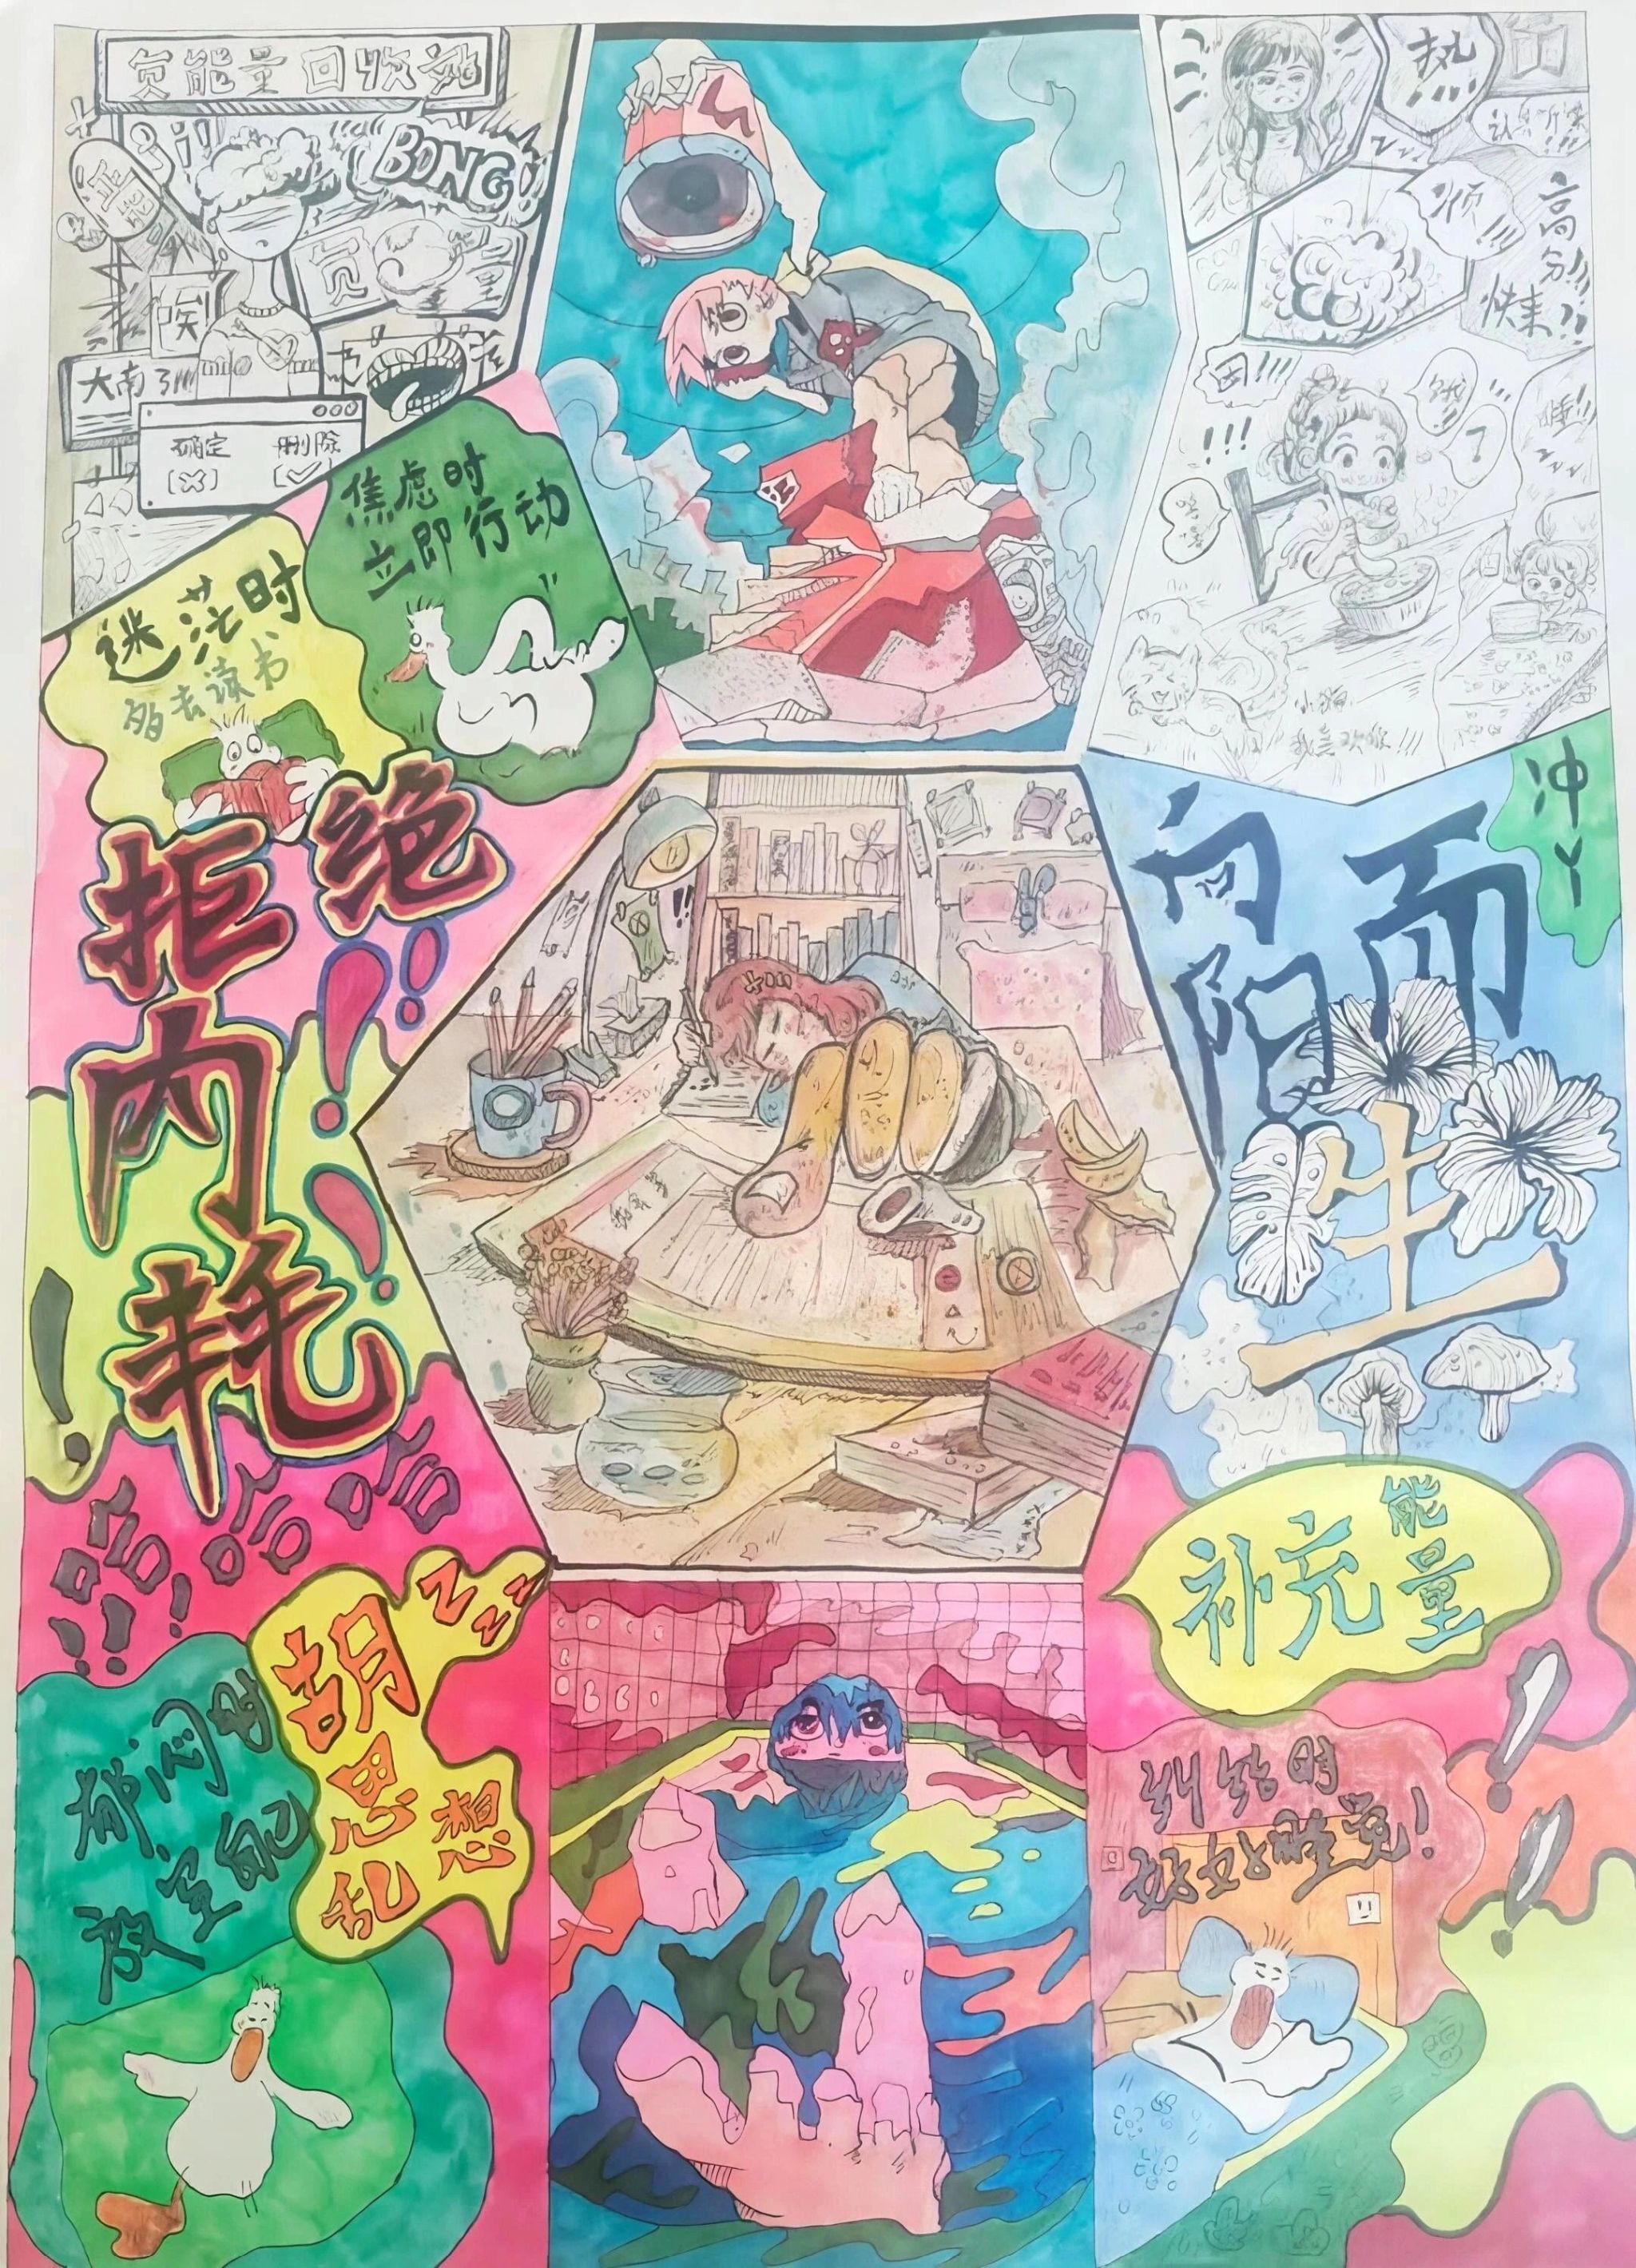 负能量回收站
BONG
正能
负能量
唉
大南了!!!
mio m
确定 删除
[×] [✓]
焦虑时
立即行动
迷茫时
多去读书
拒绝
内
耗
!!
哈哈哈
!!!
胡
思
乱想
Zzzz
郁闷时
放空自己
热
烦!!!
高
分!!!
快来!!
困!!!
!!!
饿
睡!!
zzz
小猫
我喜欢你!!!
冲
丫
向
而
阳
生
补充能量
纠结时
好好睡觉!